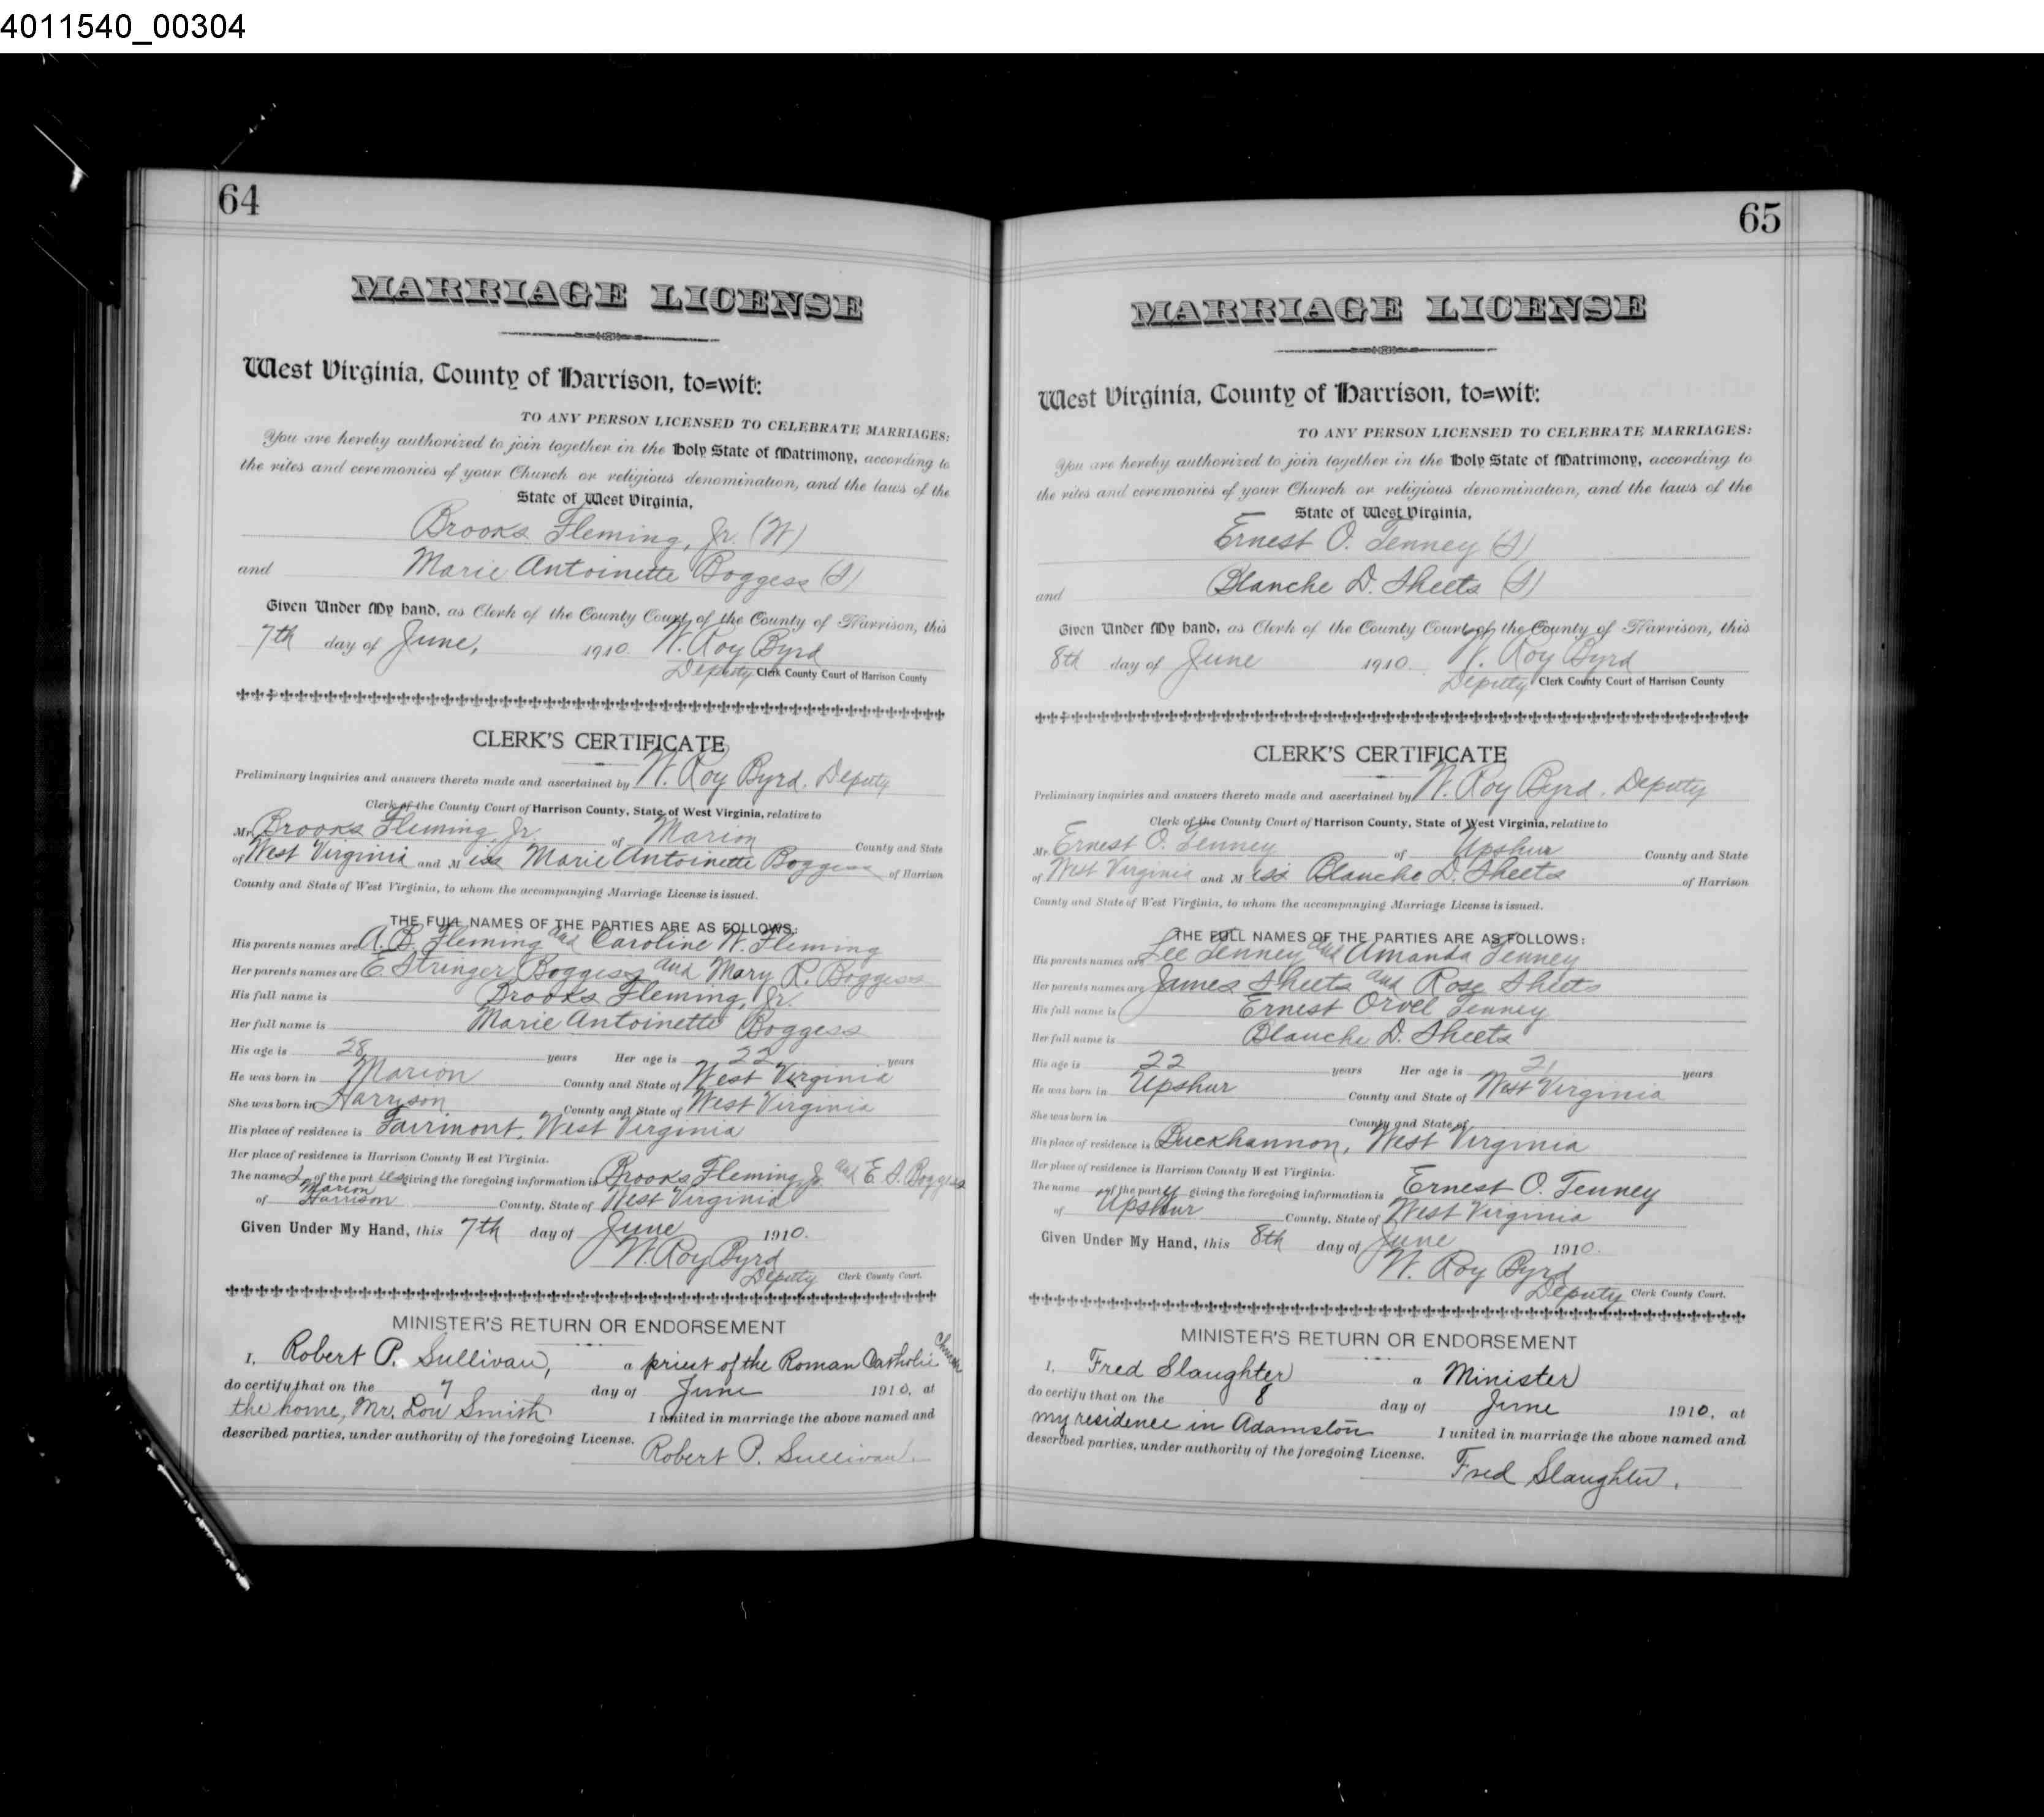 4011540_00304
64
MARRIAGE LICENSE
West Virginia, County of Harrison, to=wit:
TO ANY PERSON LICENSED TO CELEBRATE MARRIAGES:
You are hereby authorized to join together in the Holy State of Matrimony, according to
the rites and ceremonies of your Church or religious denomination, and the laws of the
State of West Virginia,
Brooks Fleming, Jr. (W)
and Marie Antoinette Boggess (S)
Given Under My hand, as Clerk of the County Court of the County of Harrison, this
7th day of June, 1910. W. Roy Byrd
Deputy Clerk County Court of Harrison County
CLERK'S CERTIFICATE
Preliminary inquiries and answers thereto made and ascertained by W. Roy Byrd. Deputy
Clerk of the County Court of Harrison County, State of West Virginia, relative to
Mr. Brooks Fleming Jr. of Marion County and State
of West Virginia and Miss Marie Antoinette Boggess of Harrison
County and State of West Virginia, to whom the accompanying Marriage License is issued.
THE FULL NAMES OF THE PARTIES ARE AS FOLLOWS:
His parents names are A. B. Fleming and Caroline W. Fleming
Her parents names are E. Stringer Boggess and Mary R. Boggess
His full name is Brooks Fleming, Jr.
Her full name is Marie Antoinette Boggess
His age is 28 years Her age is 22 years
He was born in Marion County and State of West Virginia
She was born in Harrison County and State of West Virginia
His place of residence is Fairmont, West Virginia
Her place of residence is Harrison County West Virginia.
The names of the parties giving the foregoing information is Brooks Fleming Jr. and E. S. Boggess
Marion
of Harrison County, State of West Virginia
Given Under My Hand, this 7th day of June 1910.
W. Roy Byrd
Deputy Clerk County Court.
MINISTER'S RETURN OR ENDORSEMENT
I, Robert P. Sullivan, a priest of the Roman Catholic Church
do certify that on the 7 day of June 1910, at
the home, Mr. Lou Smith I united in marriage the above named and
described parties, under authority of the foregoing License.
Robert P. Sullivan.
65
MARRIAGE LICENSE
West Virginia, County of Harrison, to=wit:
TO ANY PERSON LICENSED TO CELEBRATE MARRIAGES:
You are hereby authorized to join together in the Holy State of Matrimony, according to
the rites and ceremonies of your Church or religious denomination, and the laws of the
State of West Virginia,
Ernest O. Tenney (S)
and Blanche D. Sheets (S)
Given Under My hand, as Clerk of the County Court of the County of Harrison, this
8th day of June 1910. W. Roy Byrd
Deputy Clerk County Court of Harrison County
CLERK'S CERTIFICATE
Preliminary inquiries and answers thereto made and ascertained by W. Roy Byrd. Deputy
Clerk of the County Court of Harrison County, State of West Virginia, relative to
Mr. Ernest O. Tenney of Upshur County and State
of West Virginia and Miss Blanche D. Sheets of Harrison
County and State of West Virginia, to whom the accompanying Marriage License is issued.
THE FULL NAMES OF THE PARTIES ARE AS FOLLOWS:
His parents names are Lee Tenney and Amanda Tenney
Her parents names are James Sheets and Rose Sheets
His full name is Ernest Orvel Tenney
Her full name is Blanche D. Sheets
His age is 22 years Her age is 21 years
He was born in Upshur County and State of West Virginia
She was born in County and State of
His place of residence is Buckhannon, West Virginia
Her place of residence is Harrison County West Virginia.
The name of the party giving the foregoing information is Ernest O. Tenney
of Upshur County, State of West Virginia
Given Under My Hand, this 8th day of June 1910.
W. Roy Byrd
Deputy Clerk County Court.
MINISTER'S RETURN OR ENDORSEMENT
I, Fred Slaughter a Minister
do certify that on the 8 day of June 1910, at
my residence in Adamston I united in marriage the above named and
described parties, under authority of the foregoing License.
Fred Slaughter.